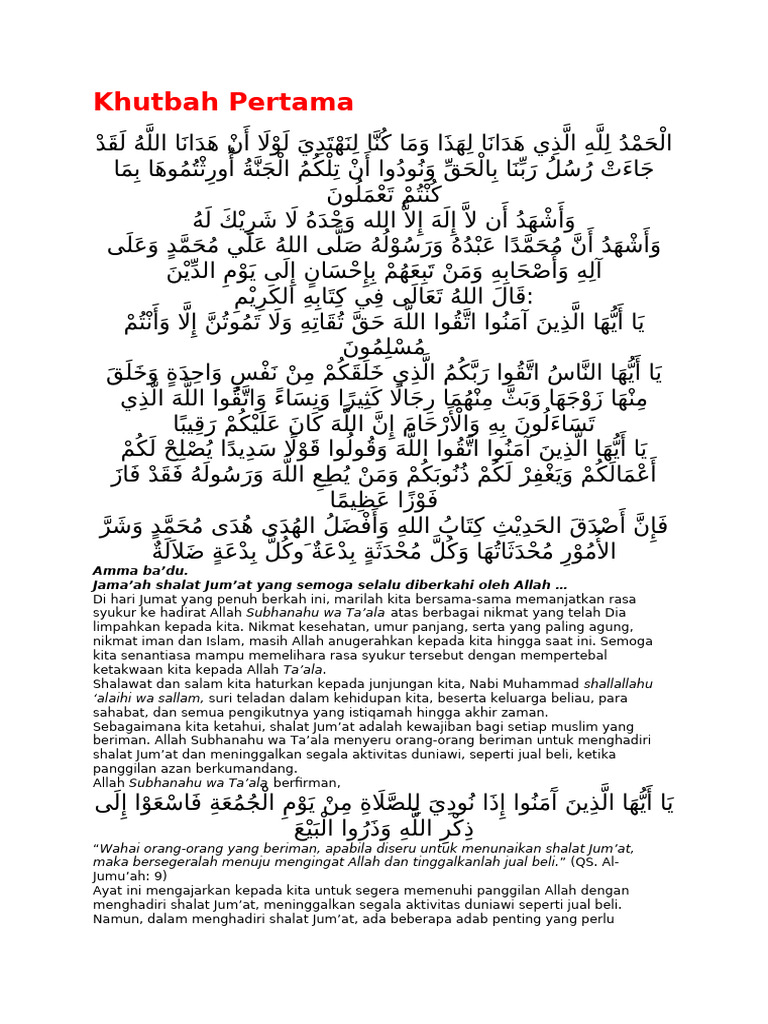 Khutbah Pertama
الْحَمْدُ لِلَّهِ الَّذِي هَدَانَا لِهَذَا وَمَا كُنَّا لِنَهْتَدِيَ لَوْلَا أَنْ هَدَانَا اللَّهُ لَقَدْ
جَاءَتْ رُسُلُ رَبِّنَا بِالْحَقِّ وَنُودُوا أَنْ تِلْكُمُ الْجَنَّةُ أُورِثْتُمُوهَا بِمَا
كُنْتُمْ تَعْمَلُونَ
وَأَشْهَدُ أَن لاَّ إِلَهَ إِلاَّ الله وَحْدَهُ لَا شَرِيْكَ لَهُ
وَأَشْهَدُ أَنَّ مُحَمَّدًا عَبْدُهُ وَرَسُوْلُهُ صَلَّى اللهُ عَلَي مُحَمَّدٍ وَعَلَى
آلِهِ وَأَصْحَابِهِ وَمَنْ تَبِعَهُمْ بِإِحْسَانٍ إِلَى يَوْمِ الدِّيْنَ
قَالَ اللهُ تَعَالَى فِي كِتَابِهِ الكَرِيْمِ:
يَا أَيُّهَا الَّذِينَ آمَنُوا اتَّقُوا اللَّهَ حَقَّ تُقَاتِهِ وَلَا تَمُوتُنَّ إِلَّا وَأَنْتُمْ
مُسْلِمُونَ
يَا أَيُّهَا النَّاسُ اتَّقُوا رَبَّكُمُ الَّذِي خَلَقَكُمْ مِنْ نَفْسٍ وَاحِدَةٍ وَخَلَقَ
مِنْهَا زَوْجَهَا وَبَثَّ مِنْهُمَا رِجَالًا كَثِيرًا وَنِسَاءً وَاتَّقُوا اللَّهَ الَّذِي
تَسَاءَلُونَ بِهِ وَالْأَرْحَامَ إِنَّ اللَّهَ كَانَ عَلَيْكُمْ رَقِيبًا
يَا أَيُّهَا الَّذِينَ آمَنُوا اتَّقُوا اللَّهَ وَقُولُوا قَوْلًا سَدِيدًا يُصْلِحْ لَكُمْ
أَعْمَالَكُمْ وَيَغْفِرْ لَكُمْ ذُنُوبَكُمْ وَمَنْ يُطِعِ اللَّهَ وَرَسُولَهُ فَقَدْ فَازَ
فَوْزًا عَظِيمًا
فَإِنَّ أَصْدَقَ الحَدِيْثِ كِتَابُ اللهِ وَأَفْضَلُ الهُدَى هُدَى مُحَمَّدٍ وَشَرَّ
الأُمُوْرِ مُحْدَثَاتُهَا وَكُلَّ مُحْدَثَةٍ بِدْعَةٌ َوكُلَّ بِدْعَةٍ ضَلاَلَةٌ
Amma ba’du.
Jama’ah shalat Jum’at yang semoga selalu diberkahi oleh Allah …
Di hari Jumat yang penuh berkah ini, marilah kita bersama-sama memanjatkan rasa
syukur ke hadirat Allah Subhanahu wa Ta’ala atas berbagai nikmat yang telah Dia
limpahkan kepada kita. Nikmat kesehatan, umur panjang, serta yang paling agung,
nikmat iman dan Islam, masih Allah anugerahkan kepada kita hingga saat ini. Semoga
kita senantiasa mampu memelihara rasa syukur tersebut dengan mempertebal
ketakwaan kita kepada Allah Ta’ala.
Shalawat dan salam kita haturkan kepada junjungan kita, Nabi Muhammad shallallahu
‘alaihi wa sallam, suri teladan dalam kehidupan kita, beserta keluarga beliau, para
sahabat, dan semua pengikutnya yang istiqamah hingga akhir zaman.
Sebagaimana kita ketahui, shalat Jum’at adalah kewajiban bagi setiap muslim yang
beriman. Allah Subhanahu wa Ta’ala menyeru orang-orang beriman untuk menghadiri
shalat Jum’at dan meninggalkan segala aktivitas duniawi, seperti jual beli, ketika
panggilan azan berkumandang.
Allah Subhanahu wa Ta’ala berfirman,
يَا أَيُّهَا الَّذِينَ آَمَنُوا إِذَا نُودِيَ لِلصَّلَاةِ مِنْ يَوْمِ الْجُمُعَةِ فَاسْعَوْا إِلَى
ذِكْرِ اللَّهِ وَذَرُوا الْبَيْعَ
“Wahai orang-orang yang beriman, apabila diseru untuk menunaikan shalat Jum’at,
maka bersegeralah menuju mengingat Allah dan tinggalkanlah jual beli.” (QS. Al-
Jumu’ah: 9)
Ayat ini mengajarkan kepada kita untuk segera memenuhi panggilan Allah dengan
menghadiri shalat Jum’at, meninggalkan segala aktivitas duniawi seperti jual beli.
Namun, dalam menghadiri shalat Jum’at, ada beberapa adab penting yang perlu